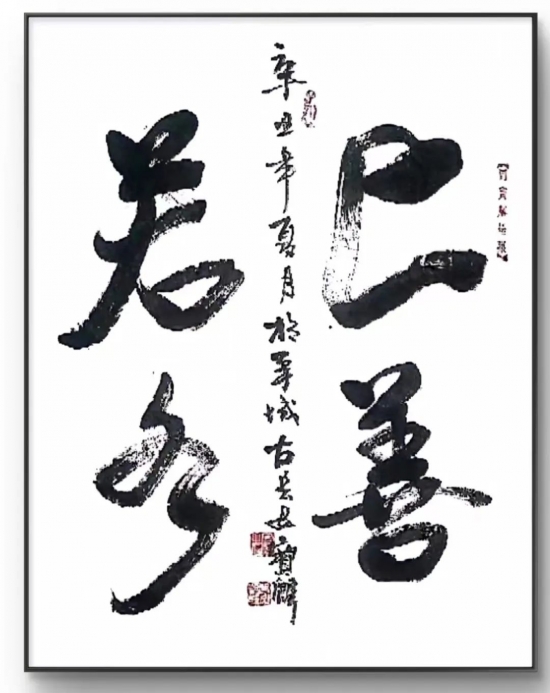 上善
若水
辛丑年夏月於華城古吴
寶麟